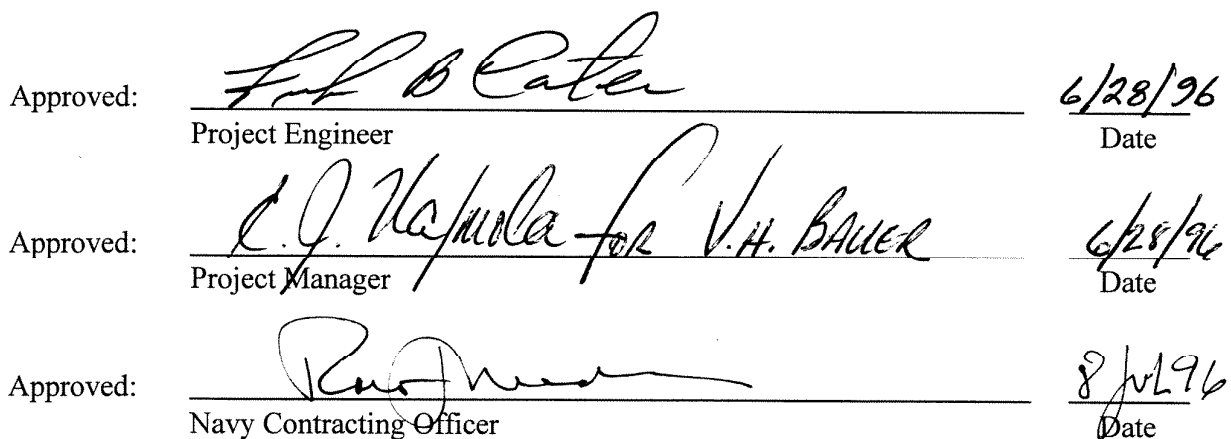 Approved: B Cater 6/28/96
Project Engineer Date
Approved: for V.H. BAUER 6/28/96
Project Manager Date
Approved: 8 Jul 96
Navy Contracting Officer Date